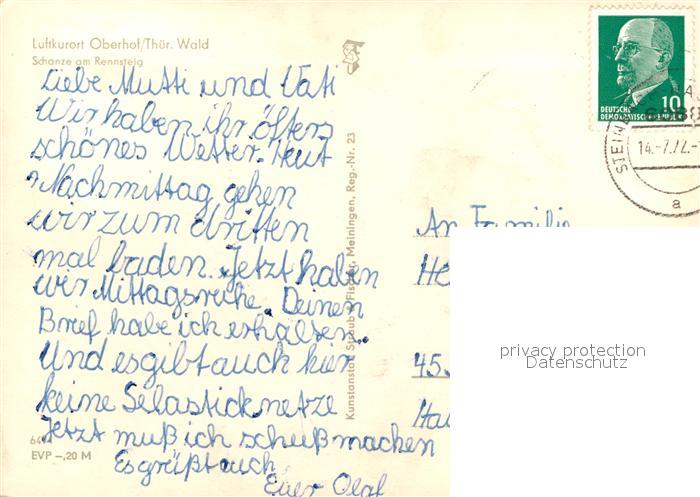 Luftkurort Oberhof/Thür. Wald
Schanze am Rennsteig
Liebe Mutti und Vati
Wir haben ihr öfters
schönes Wetter. Heut
Nachmittag gehen
wir zum dritten
mal baden. Jetzt haben
wir Mittagsruhe. Deinen
Brief habe ich erhalten.
Und es gibt auch hier
keine Selasticknetze
Jetzt muß ich schluß machen
Es grüßt auch
Euer Olaf
EVP -,20 M
Kunstanstalt Straub & Fischer, Meiningen, Reg.-Nr. 23
DEUTSCHE
DEMOKRATISCHE REPUBLIK
10
14.-7.72.-
a
An Familie
45
privacy protection
Datenschutz